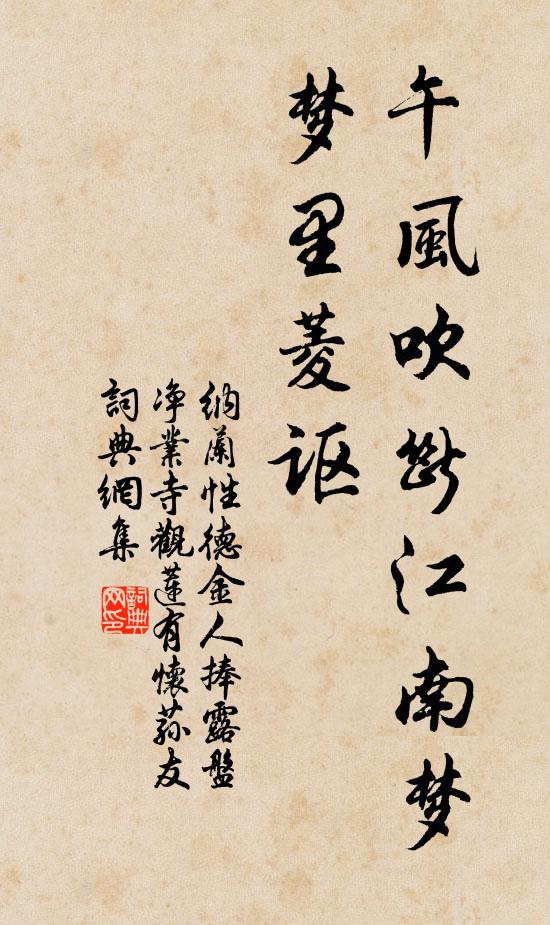 午風吹断江南梦
梦里菱讴
納蘭性德金人捧露盤
净業寺觀蓮有懷蓀友
詞典網集
詞典网印